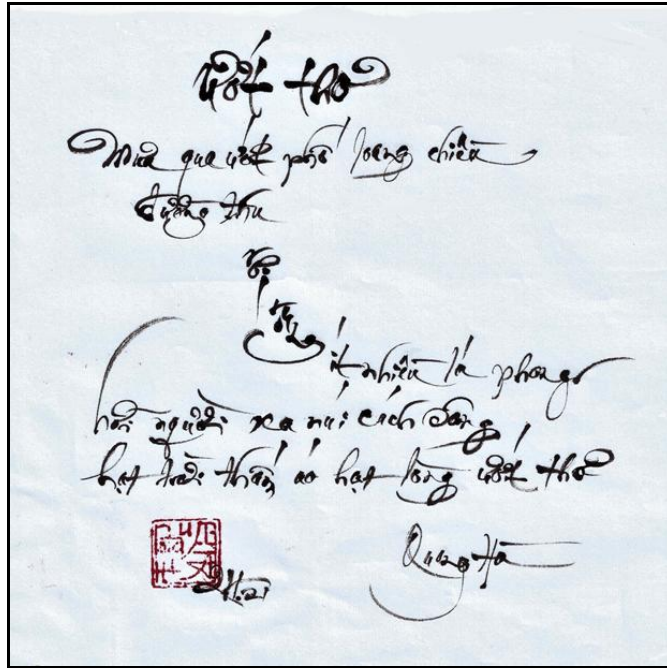 ướt thơ
Mưa qua ướt phố loang chiều
đường thu
rơi
rụng
ít nhiều lá phong
hỡi người xa núi cách sông
hạt trời thấm áo hạt lòng ướt thơ
Quang Hà